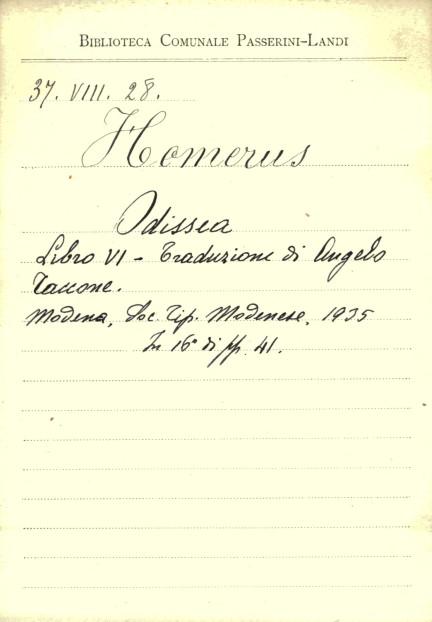 BIBLIOTECA COMUNALE PASSERINI-LANDI
37. VIII. 28.
Homerus
Odissea
Libro VI - Traduzione di Angelo
Taccone.
Modena, Soc. Tip. Modenese, 1935
In 16° di pp. 41.